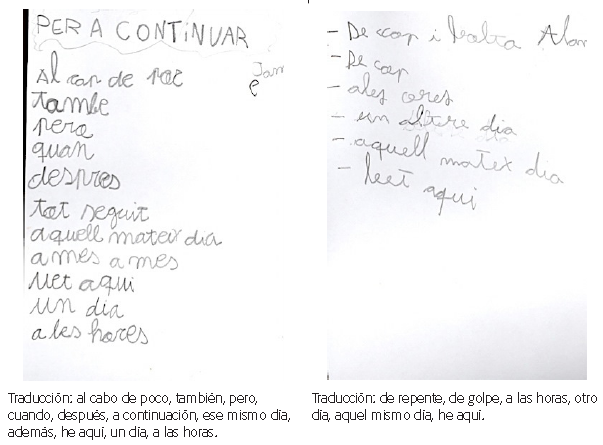 PER A CONTINUAR
Al cap de poc
tambe
pero
quan
despres
tot seguit
aquell mateix dia
a mes a mes
Vet aqui
un dia
a les hores
- De cop i
- De cop
- ales ores
- un altere dia
- aquell matex dia
- aqui
Traducción: al cabo de poco, también, pero,
cuando, después, a continuación, ese mismo día,
además, he aquí, un día, a las horas.
Traducción: de repente, de golpe, a las horas, otro
día, aquel mismo día, he aquí.